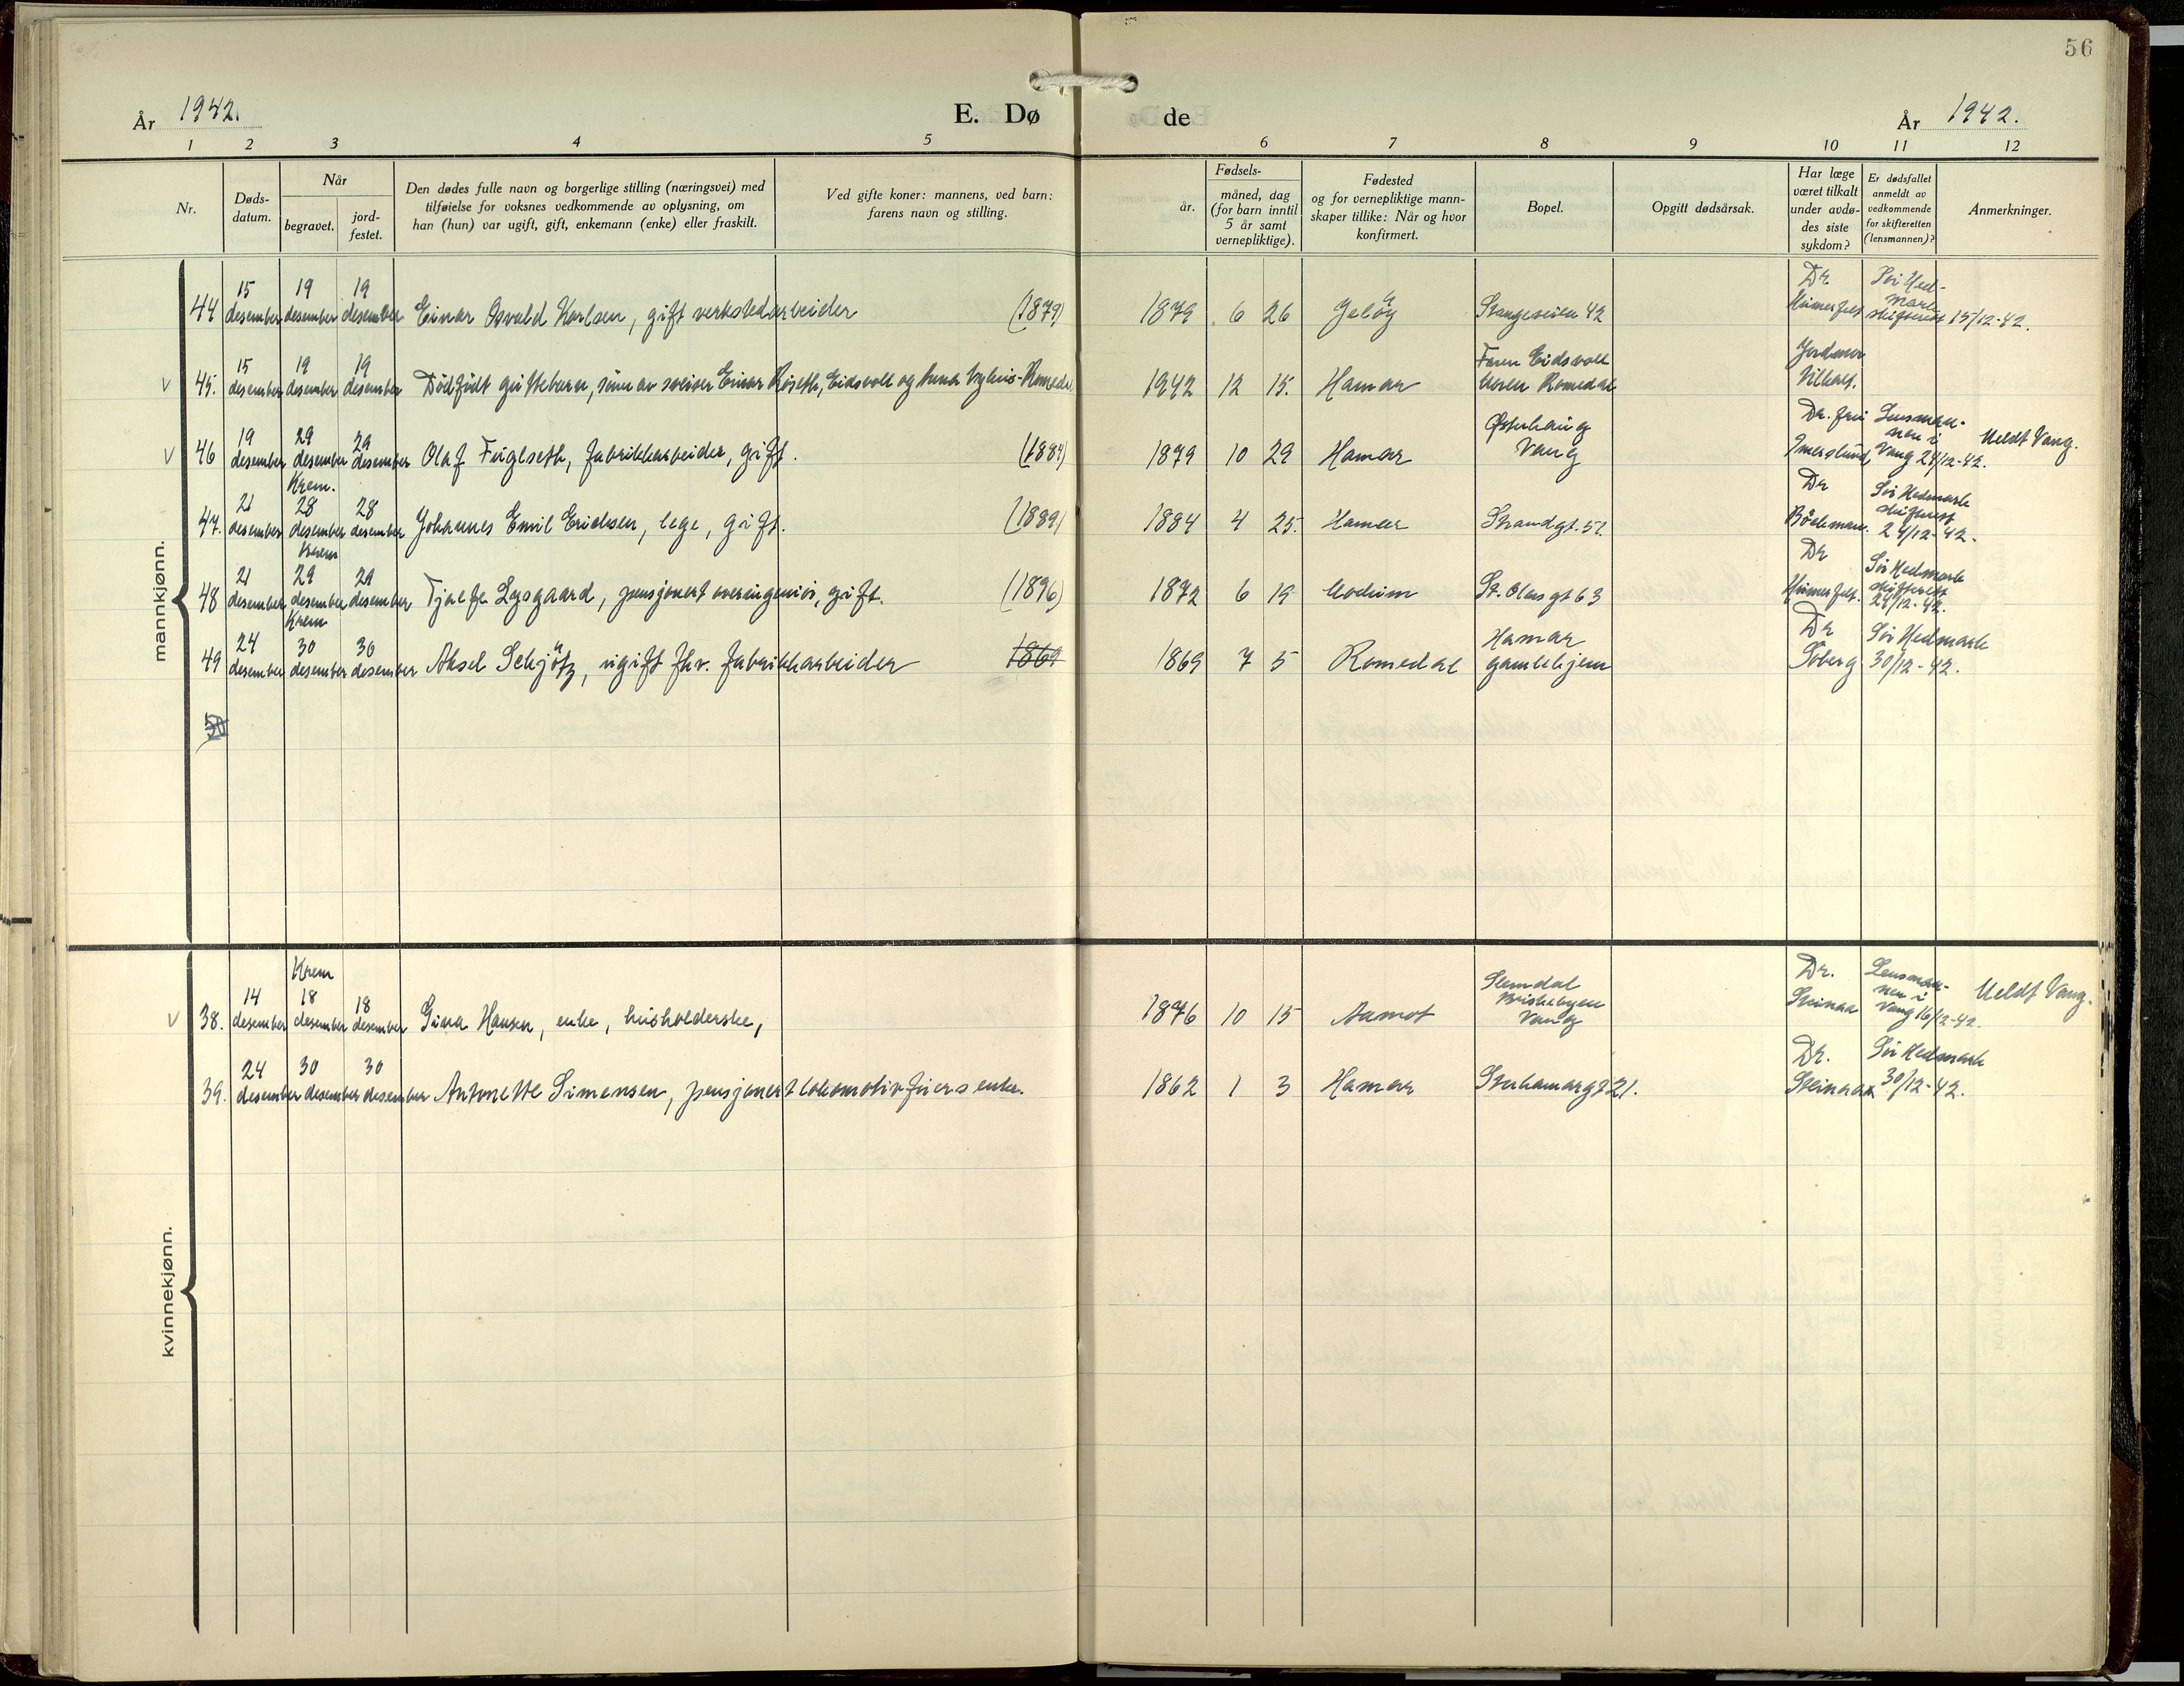 56
År 1942. E. Dø de År 1942.
1 2 3 4 5 6 7 8 9 10 11 12
Nr.
Døds-
datum.
Når
begravet.
jord-
festet.
Den dødes fulle navn og borgerlige stilling (næringsvei) med
tilføielse for voksnes vedkommende av oplysning, om
han (hun) var ugift, gift, enkemann (enke) eller fraskilt.
Ved gifte koner: mannens, ved barn:
farens navn og stilling.
Fødsels-
år.
måned, dag
(for barn inntil
5 år samt
vernepliktige).
Fødested
og for vernepliktige mann-
skaper tillike: Når og hvor
konfirmert.
Bopel.
Opgitt dødsårsak.
Har læge
været tilkalt
under avdø-
des siste
sykdom?
Er dødsfallet
anmeldt av
vedkommende
for skifteretten
(lensmannen)?
Anmerkninger.
mannkjønn.
15 19 19 Dr Sør Hed-
mark
44 desember desember desember Einar Osvald Karlsen, gift verkstedarbeider (1879) 1879 6 26 Jeløy Stangeveien 42 skifterett 15/12-42.
15 19 19 Faren Eidsvoll Jordmor
V 45. desember desember desember Dødfødt guttebarn, sønn av sveiser Einar Røseth, Eidsvoll og Romedal 1942 12 15. Hamar Moren Romedal tilkalt.
19 29 29 Østerhaug Dr. fru Lensman-
nen i
V 46 desember desember desember Olaf Fuglseth, fabrikkarbeider, gift. (1884) 1879 10 29 Hamar Vang Imerslund, Vang 24/12-42. Meldt Vang.
Krem.
21 28 28 Dr Sør Hedmark
skifterett
47. desember desember desember Johannes Emil Erichsen, lege, gift. (1889) 1884 4 25. Hamar Strandgt. 51. 24/12-42.
Krem
21 29 29 Dr Sør Hedmark
skifterett
48 desember desember desember Lysgaard, pensjonert overingeniør, gift. (1896) 1872 6 19 Modum St. Olavs gt 63 24/12-42.
Krem
24 30 30 Hamar Dr Sør Hedmark
49 desember desember desember Aksel Schjøtz, ugift fhv. fabrikkarbeider 1869 1869 7 5 Romedal gamlehjem Soberg 30/12-42.
kvinnekjønn.
Krem
14 18 18 Slemdal
Briskebyen Dr. Lensman-
nen i
V 38. desember desember desember Gina Hansen, enke, husholderske, 1876 10 15 Aamot Vang Steinaa Vang 16/12-42. Meldt Vang.
24 30 30 Dr. Sør Hedmark
39. desember desember desember Antonette Simensen, pensjonert lokomotivførers enke. 1862 1 3 Hamar Storhamargt 21. Steinaa 30/12-42.